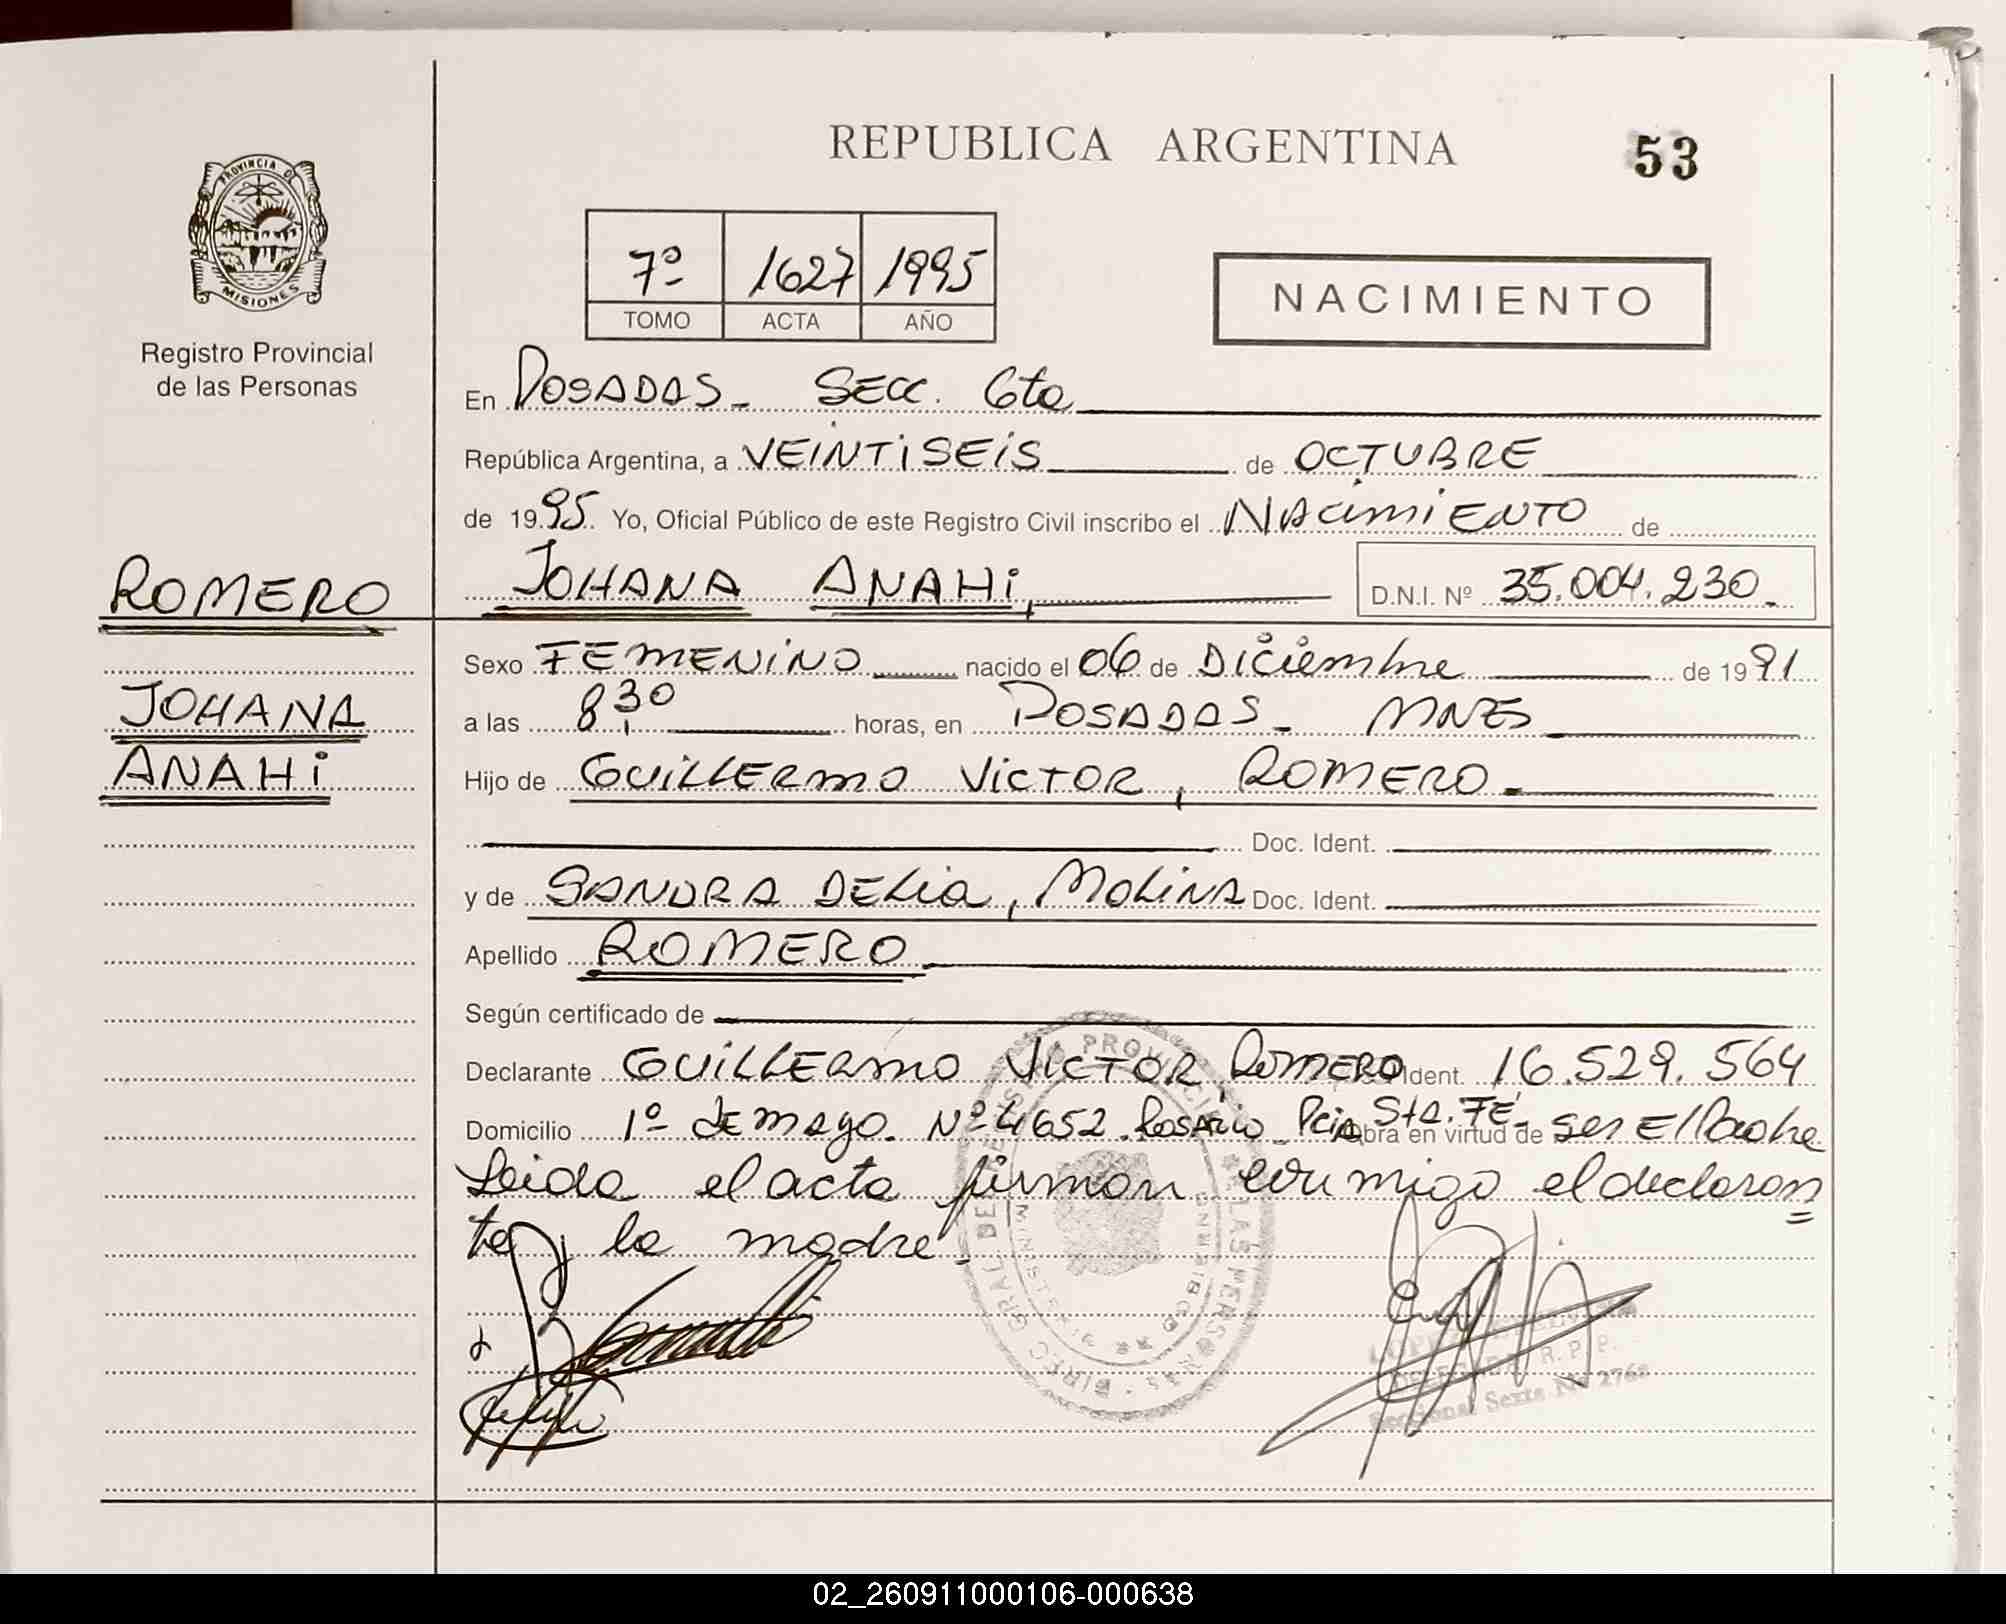 REPUBLICA ARGENTINA
53
PROVINCIA DE
MISIONES
Registro Provincial
de las Personas
7º 1627 1995
TOMO ACTA AÑO
NACIMIENTO
En POSADAS - SECC. 6ta
República Argentina, a VEINTISEIS de OCTUBRE
de 1995 Yo, Oficial Público de este Registro Civil inscribo el NACIMIENTO de
ROMERO
JOHANA ANAHI, D.N.I. Nº 35.004.230-
Sexo FEMENINO nacido el 06 de Diciembre de 1991
JOHANA
a las 8,30 horas, en POSADAS - MNES
ANAHI
Hijo de GUILLERMO VICTOR, ROMERO-
Doc. Ident.
y de SANDRA DELIA, MOLINA Doc. Ident.
Apellido ROMERO
Según certificado de
Declarante GUILLERMO VICTOR ROMERO Ident. 16.529.564
Domicilio 1º DE mayo. Nº 4652. Rosario - Pcia Sta. FÉ - obra en virtud de ser El Padre
Leida el acta firman conmigo el declaran
te y la madre.
R. P. P.
Seccional Sexta
02_260911000106-000638